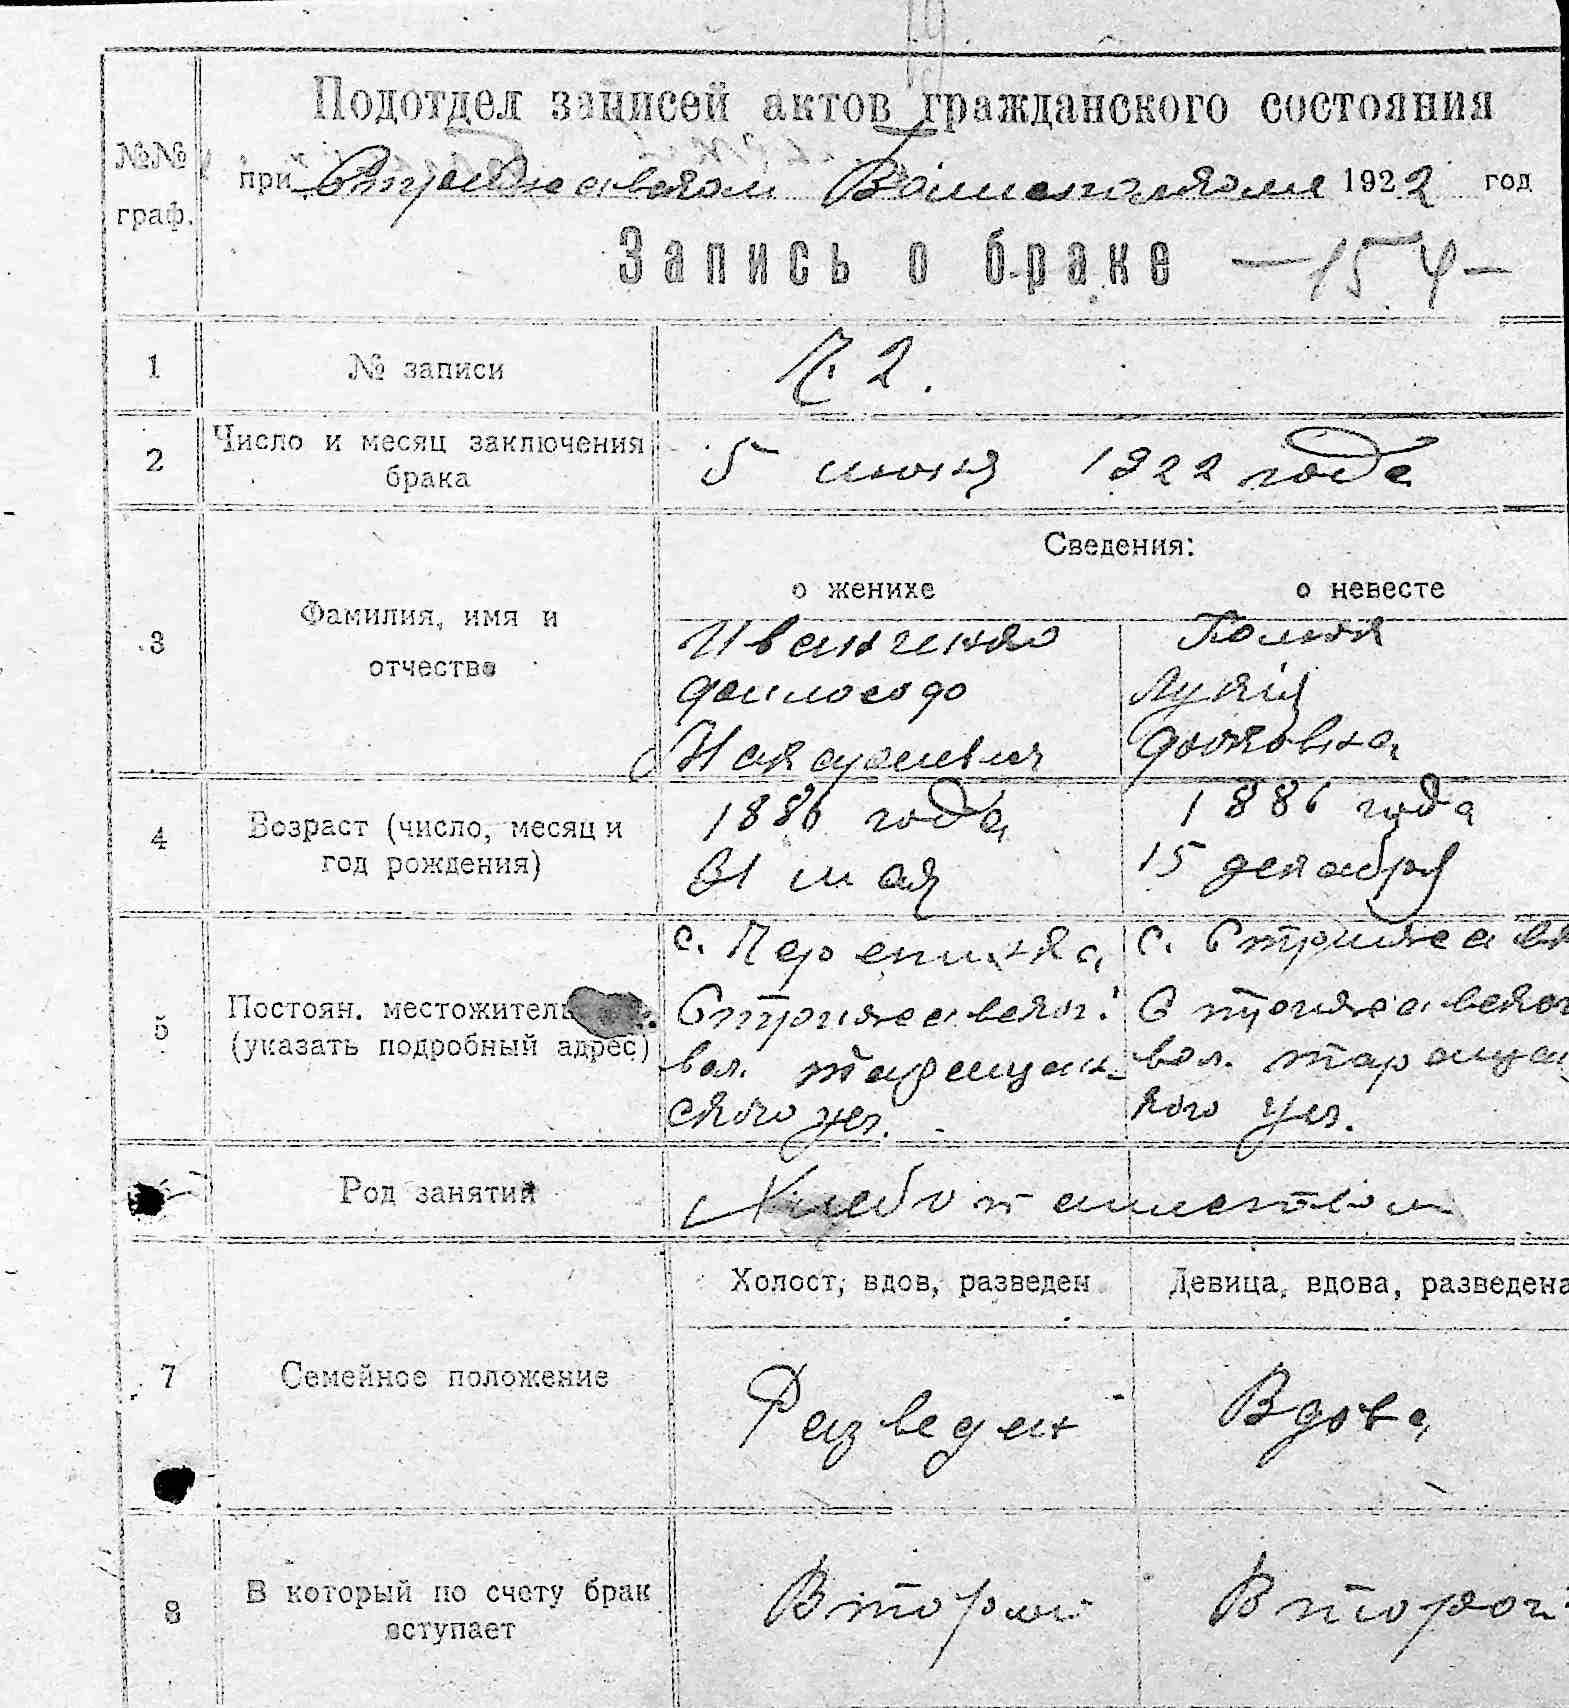 Подотдел записей актов гражданского состояния
№№ граф.
при Стрижавском Волисполкоме 1922 год
Запись о браке —154—
1 № записи Ч 2.
2 Число и месяц заключения брака 5 июня 1922 года
Сведения:
о женихе о невесте
3 Фамилия, имя и отчество
Иванченко
Полюя
Филосодо
Лукія
Фоковна
4 Возраст (число, месяц и год рождения)
1886 года 1886 года
31 мая 15 декабря
5 Постоян. местожитель (указать подробный адрес)
с. Перепичка, с. Стрижавк
Стрижавской Стрижавской
вол. таращан- вол. таращан
ского уез. кого уез.
Род занятий Хлебопашеством
Холост, вдов, разведен Девица, вдова, разведена
7 Семейное положение Разведен Вдова
8 В который по счету брак вступает Второй Второй